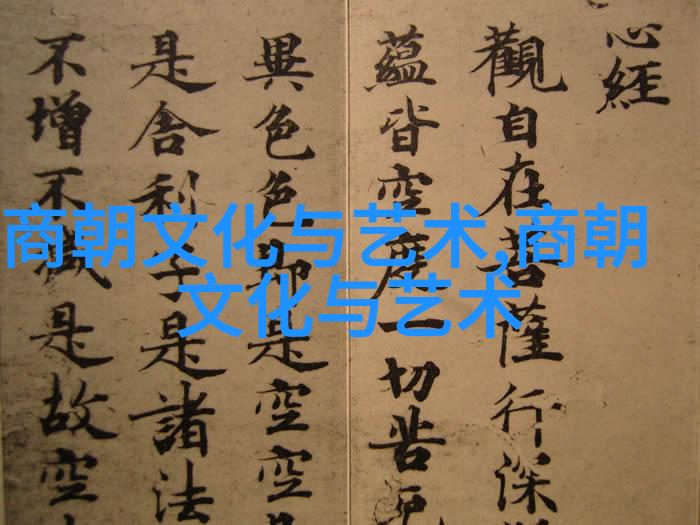 心經
觀自在菩薩行深
蘊皆空度一切苦厄
異色色即是空空
是舍利子是諸法
不增不減是故空
商朝文化与艺术,商朝
文化与艺术